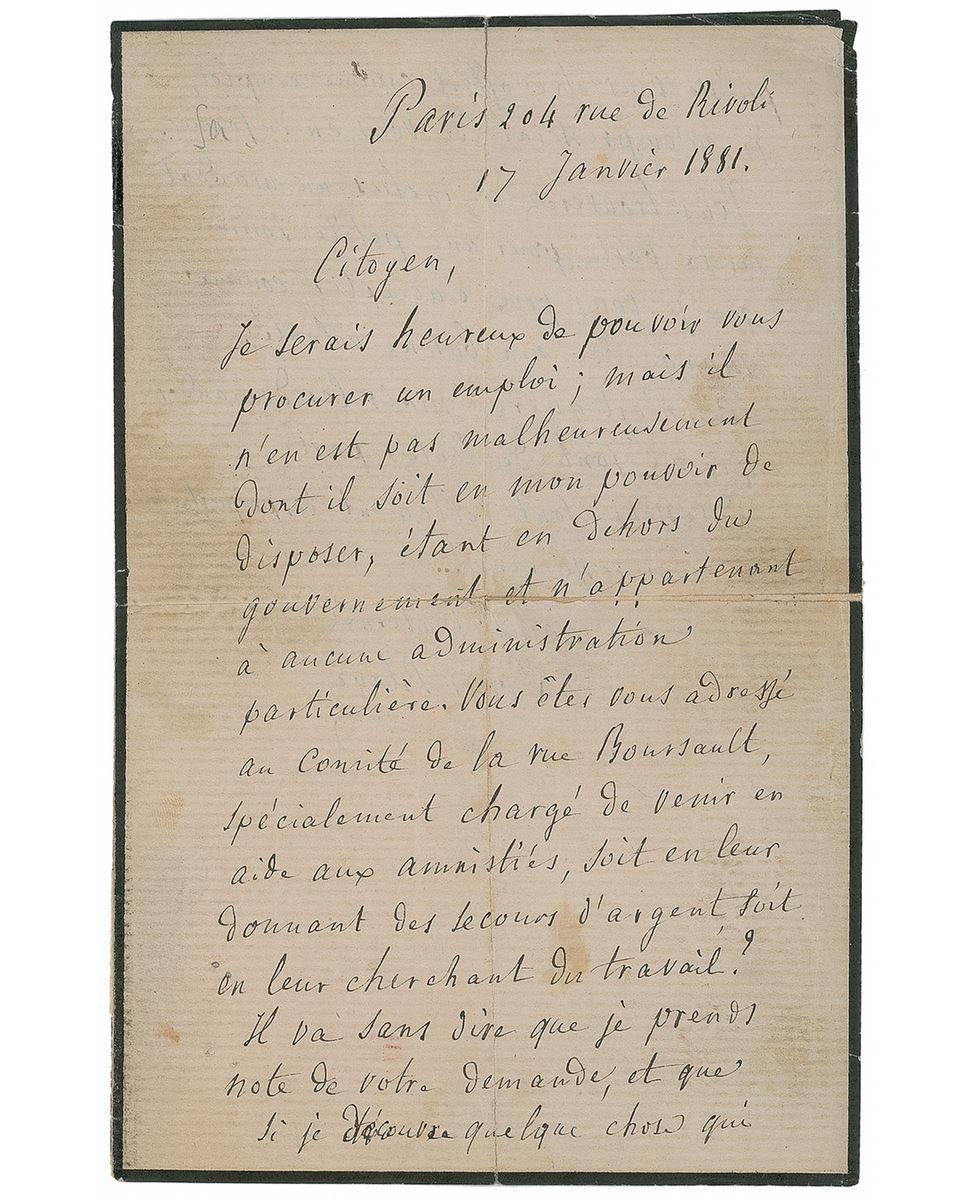 Paris 204 rue de Rivoli
17 Janvier 1881.
Citoyen,
Je serais heureux de pouvoir vous
procurer un emploi ; mais il
n'en est pas malheureusement
dont il soit en mon pouvoir de
disposer, étant en dehors du
gouvernement et n'appartenant
à aucune administration
particulière. Vous êtes vous adressé
au Comité de la rue Boursault,
spécialement chargé de venir en
aide aux amnistiés, soit en leur
donnant des secours d'argent, soit
en leur cherchant du travail ?
Il va sans dire que je prends
note de votre demande, et que
si je découvre quelque chose qui